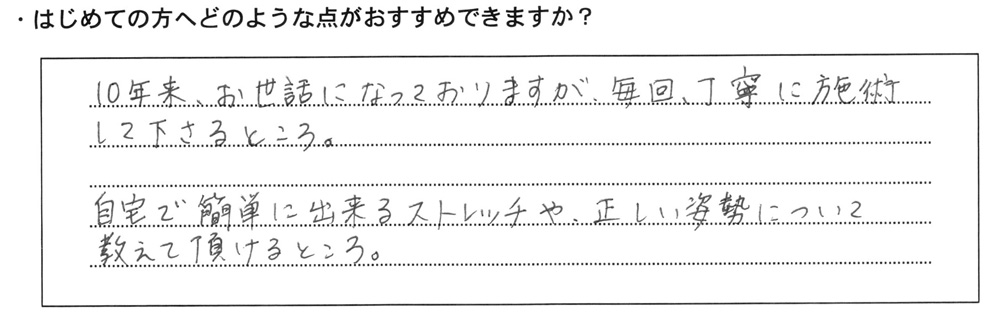 ・はじめての方へどのような点がおすすめできますか？
10年来、お世話になっておりますが、毎回、丁寧に施術
して下さるところ。
自宅で簡単に出来るストレッチや、正しい姿勢について
教えて頂けるところ。